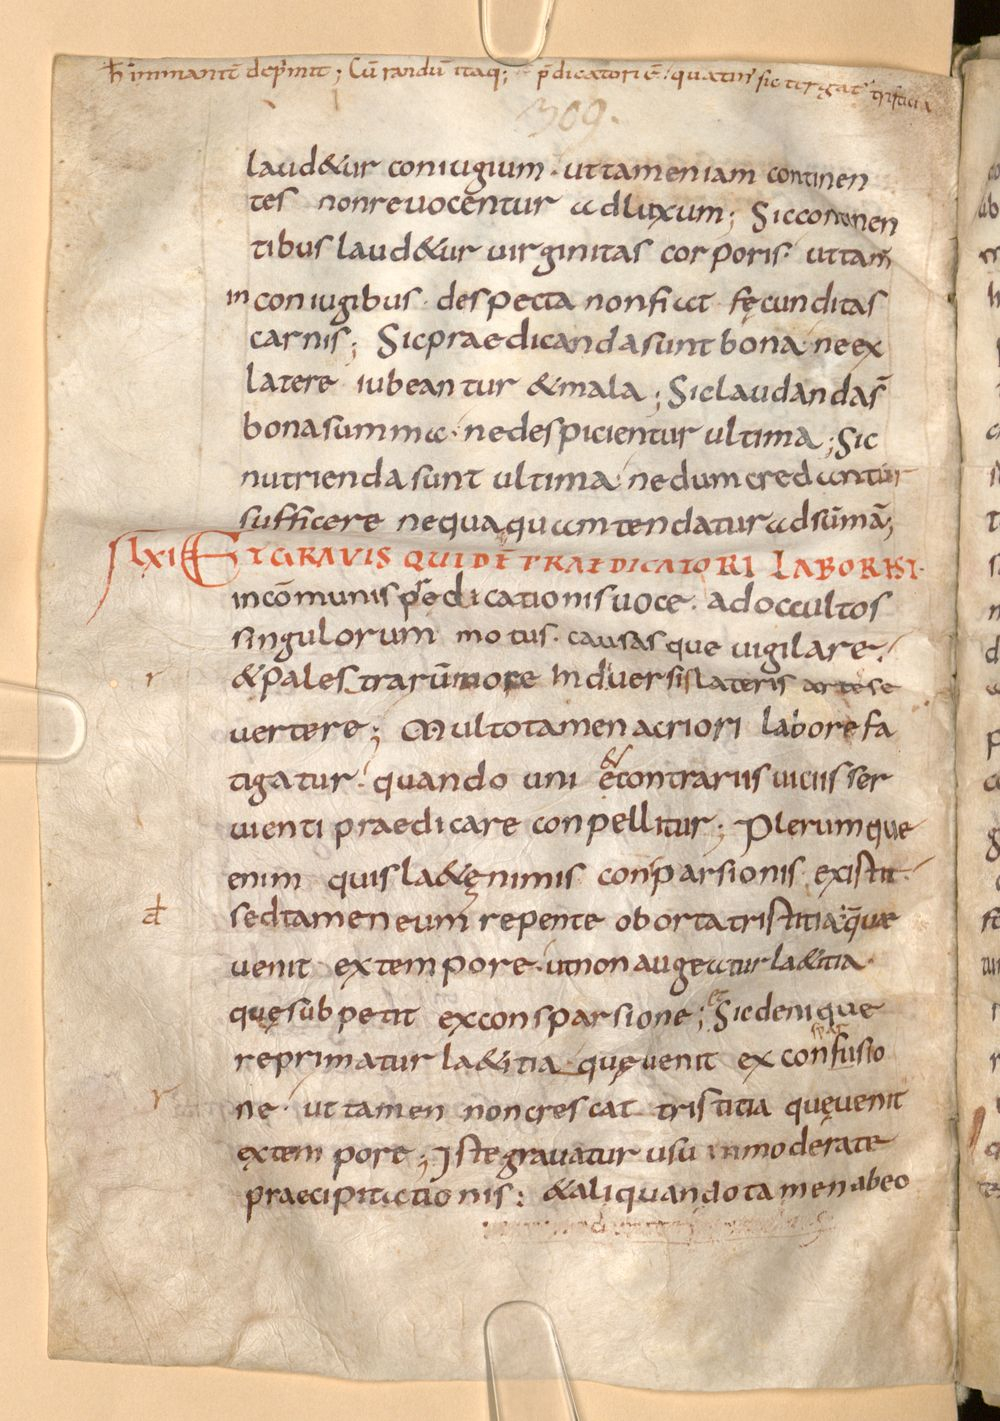 ħ immanitē dep̄mit ; Cū randū itaq; p̄dicatori ē / quatin' sic tergat tristitia
309.
laud&ur coniugium · ut tamen iam continen
tes non revocentur ad luxum ; Sic contınen
tibus laud&ur virginitas corporis · ut tam̄
in coniugibus · despecta non fiat fęcunditas
carnis ; Sic praedicanda sunt bona · ne ex
latere iubeantur & mala ; Sic laudanda s̄
bona summa · ne despicientur ultima ; Sic
nutrienda sunt ultima · ne dum credantur
sufficere nequaquam tendatur ad sūmā ;
LXI ET GRAVIS QUIDĒ PRAEDICATORI LABOR IST ·
in cōmunis predicationis voce · ad occultos
singulorum motus · causasque vigilare ·
r & palestrarū more In diversi lateris arte se
vertere ; Multo tamen acriori labore fa
tigatur · quando uni & contrariis viciis ser
vienti praedicare conpellitur ; Plerumque
enim quis la&ę nimis conparsionis existit ·
đ sed tamen eum repente oborta tristitia · q̄ uae
venit ex tempore · ut non augeatur la&itia ·
quę subpetit ex consparsione ; et Sic denique
reprimatur la&itia · quę venit ex confusio
r ne · ut tamen non crescat tristitia quę venit
ex tempore ; Iste gravatur usu inmoderate
praecipitationis ; & aliquando tamen ab eo